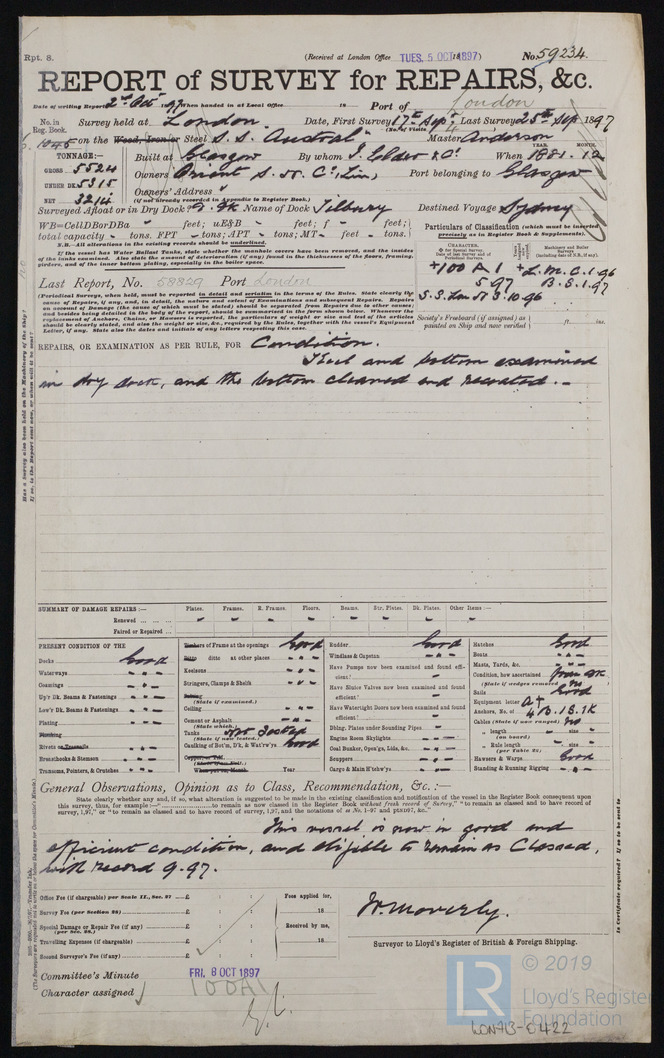 Rpt. 8.
(Received at London Office TUES. 5 OCT 1897)
No. 59234.
REPORT of SURVEY for REPAIRS, &c.
Date of writing Report 2nd Oct 1897 When handed in at Local Office 18 Port of London
No. in Reg. Book. Survey held at London Date, First Survey 17th Sep, Last Survey 25th Sep 1897
(No. of Visits 4)
1045 on the Wood, Iron or Steel S.S. "Austral" Master Anderson
TONNAGE:—
GROSS 5524
UNDER DK 5315
NET 3214
Built at Glasgow By whom J. Elder & Co. When 1881. 12
YEAR. MONTH.
Owners Orient S. N. Co. (Lim) Port belonging to Glasgow
Owners' Address
(if not already recorded in Appendix to Register Book.)
Surveyed Afloat or in Dry Dock? Name of Dock Tilbury Destined Voyage Sydney
WB=CellDBorDBa feet; uE&B feet; f feet;
total capacity tons. FPT tons; APT tons; MT feet tons.
N.B.—All alterations in the existing records should be underlined.
If the vessel has Water Ballast Tanks, state whether the manhole covers have been removed, and the insides of the tanks examined. Also state the amount of deterioration (if any) found in the thicknesses of the floors, framing, girders, and of the inner bottom plating, especially in the boiler space.
Particulars of Classification (which must be inserted precisely as in Register Book & Supplements).
CHARACTER.
Machinery and Boiler Surveys
+100 A 1 +L.M.C. 1.96
5 97 B.S. 1.97
S.S. Lon No 3. 10.96
Last Report, No. 58829 Port London
(Periodical Surveys, when held, must be reported in detail and seriatim in the terms of the Rules. State clearly the cause of Repairs, if any, and, in detail, the nature and extent of Examinations and subsequent Repairs. Repairs on account of Damage (the cause of which must be stated) should be separated from Repairs due to other causes; and besides being detailed in the body of the report, should be summarised in the form shown below. Whenever the replacement of Anchors, Chains, or Hawsers is reported, the particulars of weight or size and test of the articles should be clearly stated, and also the weight or size, &c., required by the Rules, together with the vessel's Equipment Letter, if any. State also the dates and initials of any letters respecting this case.
Society's Freeboard (if assigned) as painted on Ship and now verified ft. ins.
REPAIRS, OR EXAMINATION AS PER RULE, FOR Condition.
Keel and bottom examined
in dry dock, and the bottom cleaned and recoated.
SUMMARY OF DAMAGE REPAIRS:— Plates. Frames. R. Frames. Floors. Beams. Str. Plates. Dk. Plates. Other Items:—
Renewed
Faired or Repaired
PRESENT CONDITION OF THE
Decks Good
Waterways
Coamings
Up'r Dk. Beams & Fastenings
Low'r Dk. Beams & Fastenings
Plating
Planking
Rivets or Treenails
Breasthooks & Stemson
Transoms, Pointers, & Crutches
Timbers of Frame at the openings Good
Ditto ditto at other places
Keelsons
Stringers, Clamps & Shelfs
(State if examined.)
Ceiling
Cement or Asphalt
(State which.)
Tanks Not Tested
(State if now tested.)
Caulking of Bot'm, D'k, & Wat'rw'ys Good
Year
Rudder Good
Windlass & Capstan
Have Pumps now been examined and found efficient?
Have Sluice Valves now been examined and found efficient?
Have Watertight Doors now been examined and found efficient?
Dblng. Plates under Sounding Pipes
Engine Room Skylights
Coal Bunker, Open'gs, Lids, &c.
Scuppers
Cargo & Main H'tchw'ys
Hatches Good
Boats
Masts, Yards, &c.
Condition, how ascertained from DK
(State if wedges removed) No
Sails Good
Equipment letter A+
Anchors, No. of 4 B. 1 S. 1 K
Cables (State if now ranged) No
" length size
(on board)
" Rule length size
(per Table 22)
Hawsers & Warps Good
Standing & Running Rigging
General Observations, Opinion as to Class, Recommendation, &c.:—
State clearly whether any, and if so, what alteration is suggested to be made in the existing classification and notification of the vessel in the Register Book consequent upon this survey, thus, for example:— to remain as now classed in the Register Book without fresh record of Survey," "to remain as classed and to have record of survey, 1,97," or "to remain as classed and to have record of survey, 1,97, and the notations of
This vessel is now in good and
efficient condition, and eligible to remain as Classed,
with record 9.97.
Office Fee (if chargeable) per Scale II., Sec. 27 £ : :
Survey Fee (per Section 28) £ : :
Special Damage or Repair Fee (if any) £ : :
(per Sec. 28.)
Travelling Expenses (if chargeable) £ : :
Second Surveyor's Fee (if any) £ : :
Fees applied for,
18
Received by me,
18
W. Moverly.
Surveyor to Lloyd's Register of British & Foreign Shipping.
Committee's Minute FRI. 8 OCT 1897
Character assigned 100A1
LR © 2019
Lloyd's Register
Foundation
LON713-0422
Has a Survey also been held on the Machinery of the Ship?
If so, is the Report sent now, or when will it be sent?
Is Certificate required? If so to be sent to